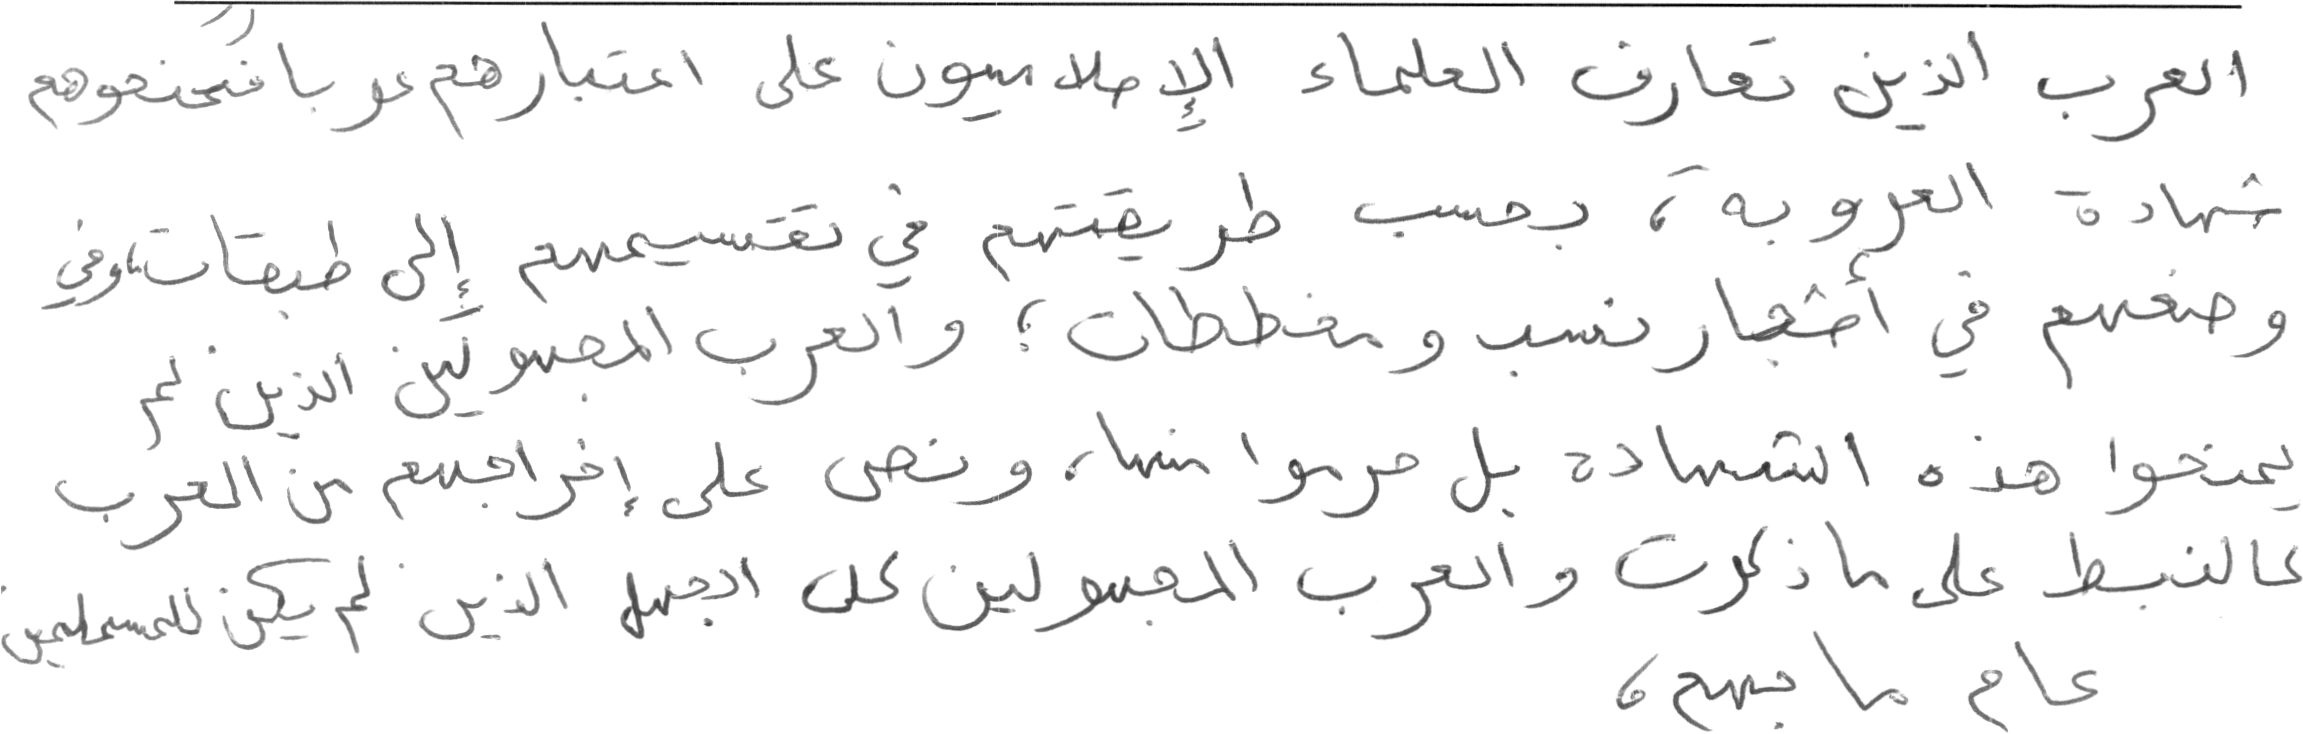 العرب الذين تعارف العلماء الإسلاميون على اعتبارهم عربا فمنحوهم
شهادة العروبة، بحسب طريقتهم في تقسيمهم إلى طبقات، وفي
وضعهم في أشجار نسب ومخططات؛ والعرب المجهولين الذين لم
يمنحوا هذه الشهادة بل حرموا منها، ونص على إخراجهم من العرب
كالنبط على ما ذكرت والعرب المجهولين كل الجهل الذين لم يكن للمسلمين
عام ما بهم،